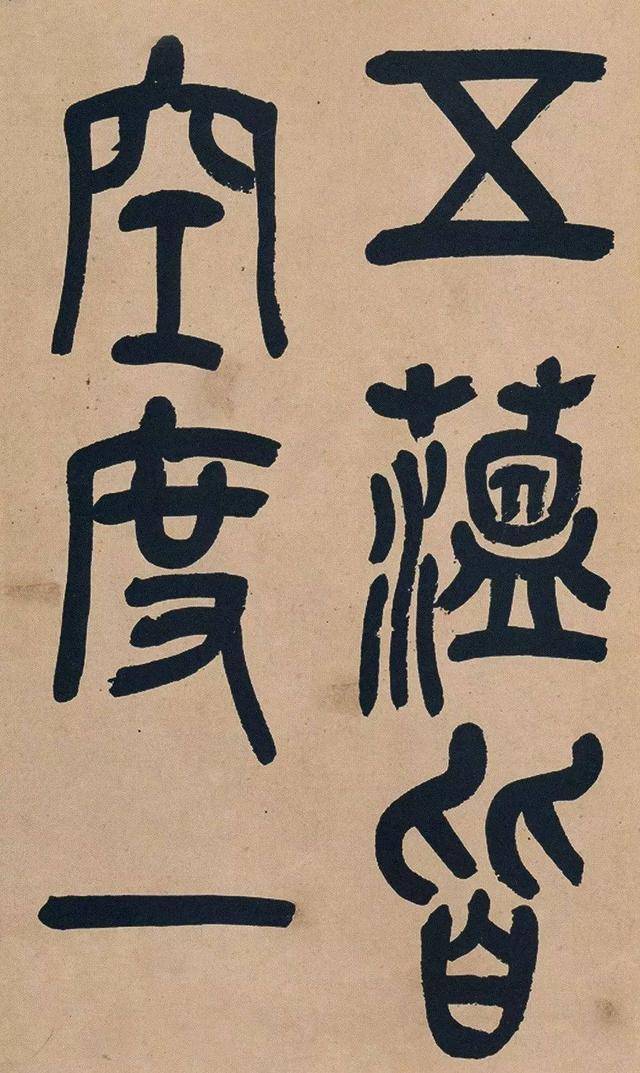 五薀皆
空度一